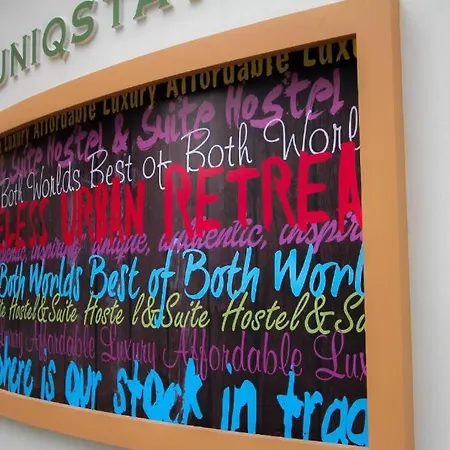 UNIQSTA
Luxury Affordable Luxury Affordable Luxury
Suite Hostel & Suite Hostel
Both Worlds Best of Both Worlds
ELESS URBAN RETREA
authentic, inspiring, unique, authentic, inspiri
Both Worlds Best of Both Worl
te Hostel&Suite Hostel&Suite Hostel&Su
Luxury Affordable Luxury Affordable Lux
phere is our stock in trad